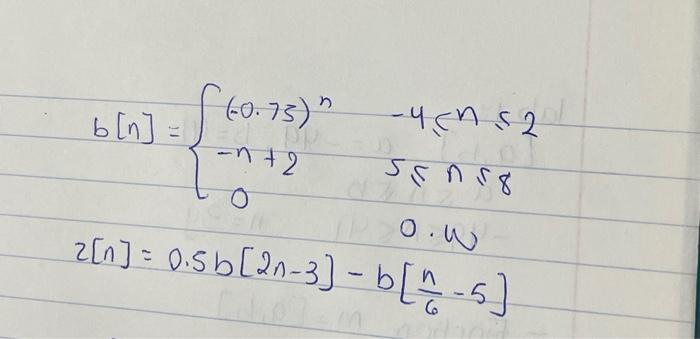 b[n] = { (-0.75)^n -4 ≤ n ≤ 2
-n+2 5 ≤ n ≤ 8
0 0.w
z[n] = 0.5b[2n-3] - b[n/6 - 5]